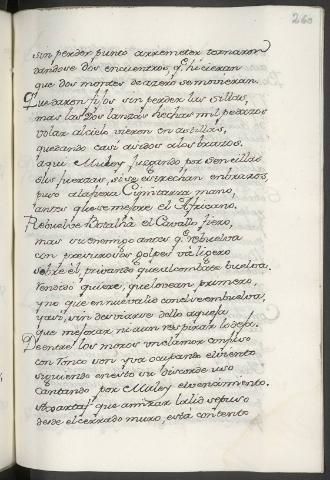 260
sin perder punto arremeter tornaron
dandose dos encuentros, q̃ hicieran
que dos montes de azero se movieran.
Quedaron fijos sin perder las sillas,
mas las dos lanzas hechas mil pedazos
volar al cielo vieron en astillas,
quedando casi asidos a los brazos.
aqui Muley juzgando por sencillas
sus fuerzas, si se estrechan en brazos,
puso a la fiera Cimitarra mano,
antes que se mejore el Africano.
Rebuelve Batalha el Cavallo fiero,
mas su enemigo antes q̃ rebuelva
con presurosos golpes va ligero
sobre el, privando que al combate buelva.
Venoso quiere, que lo vean primero,
y no que en nueva lid con el se embuelva,
y asi, sin desviarse dello aqueja
que mejorar ni aun respirar lo deja.
De entre los moros un clamor confuso
con ronco son yva ocupando el viento
siguiendo en esto su discorde uso
cantando por Muley el vencimiento.
Aboartaf que a mirar la lid se puso
desde el cerrado muro, está contento